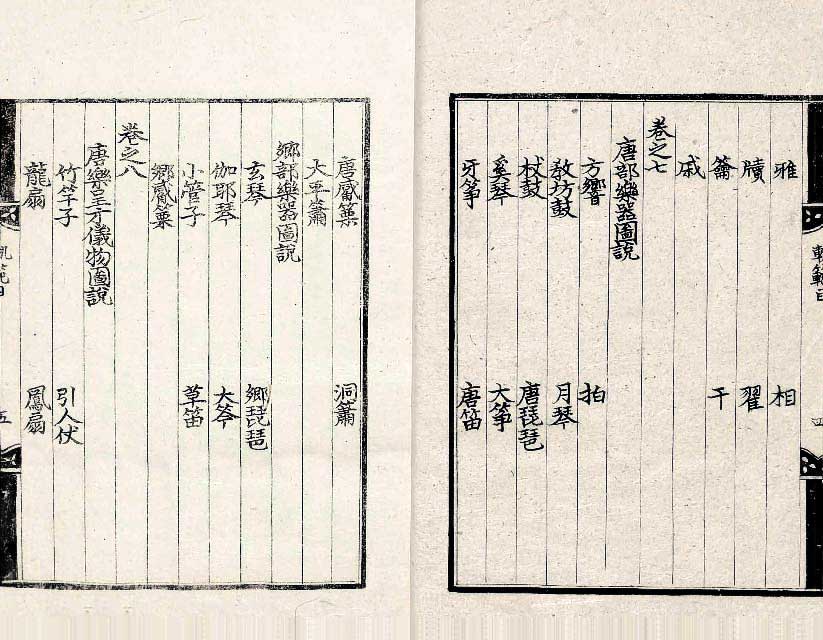 雅 相
牘 翟
籥 干
戚
卷之七
唐部樂器圖說
方響 拍
敎坊鼓 月琴
杖鼓 唐琵琶
奚琴 大箏
牙箏 唐笛
唐觱篥 洞簫
大平簫
鄕部樂器圖說
玄琴 鄕琵琶
伽耶琴 大笒
小管子 草笛
鄕觱篥
卷之八
唐樂呈才儀物圖說
竹竿子 引人仗
龍扇 鳳扇
五